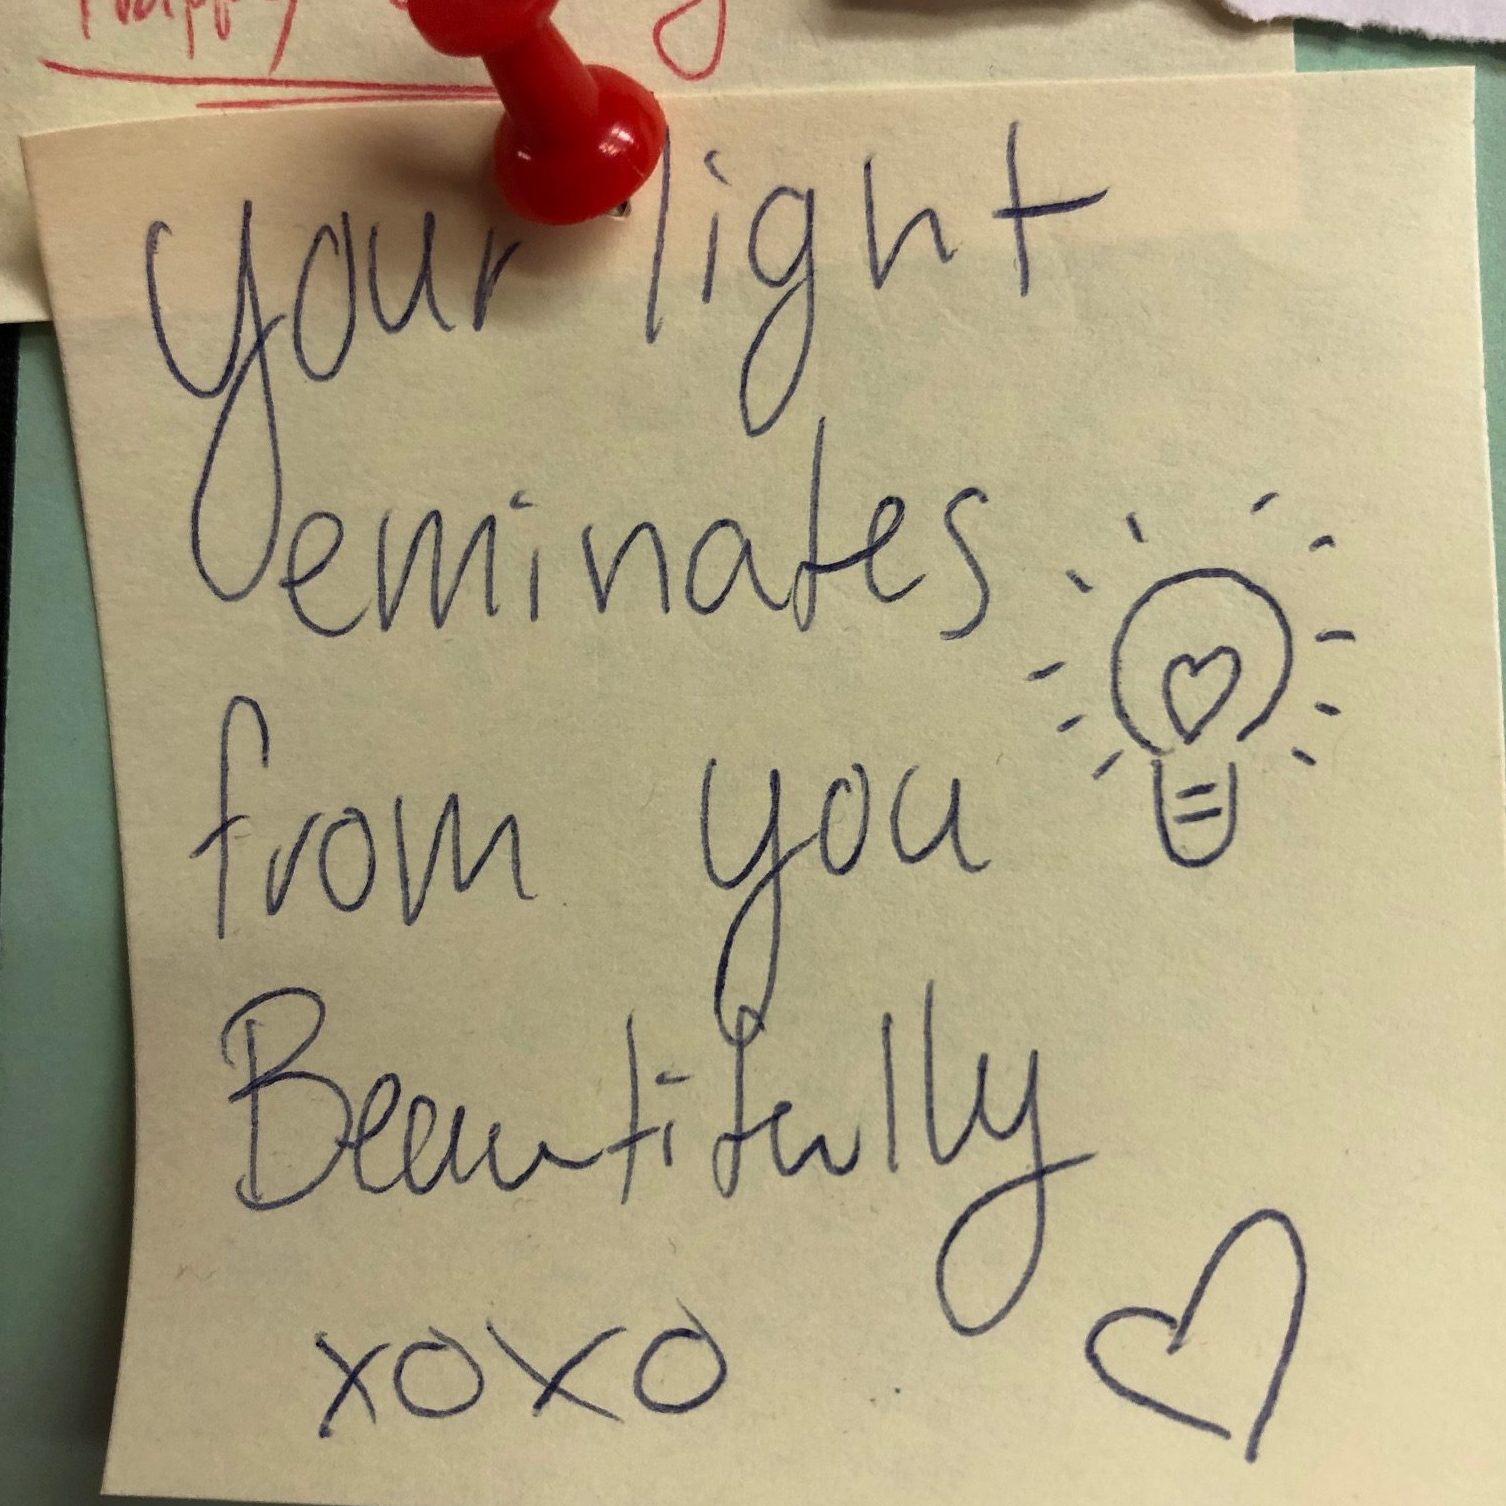 Happy
your light
eminates
from you
Beautifully
xoxo